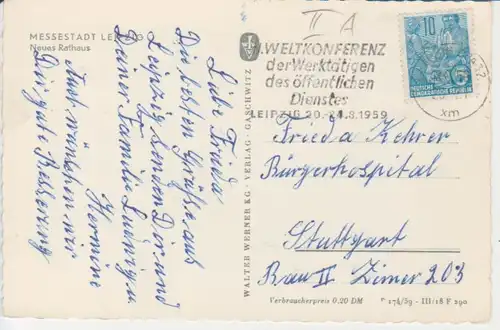 MESSESTADT LEIPZIG
Neues Rathaus
Liebe Frieda
Die besten Grüße aus
Leipzig senden Dir und
Deiner Familie Ludwig u
Hermine
Auch wünschen wir
Dir gute Besserung
WALTER WERNER KG · VERLAG · GASCHWITZ
II A
I.WELTKONFERENZ
der Werktätigen
des öffentlichen
Dienstes
LEIPZIG 20.-24.8.1959
10
DEUTSCHE
DEMOKRATISCHE REPUBLIK
xm
Frieda Kehrer
Bürgerhospital
Stuttgart
Bau II Zimer 203
Verbraucherpreis 0.20 DM
P 174/59 - III/18 F 290